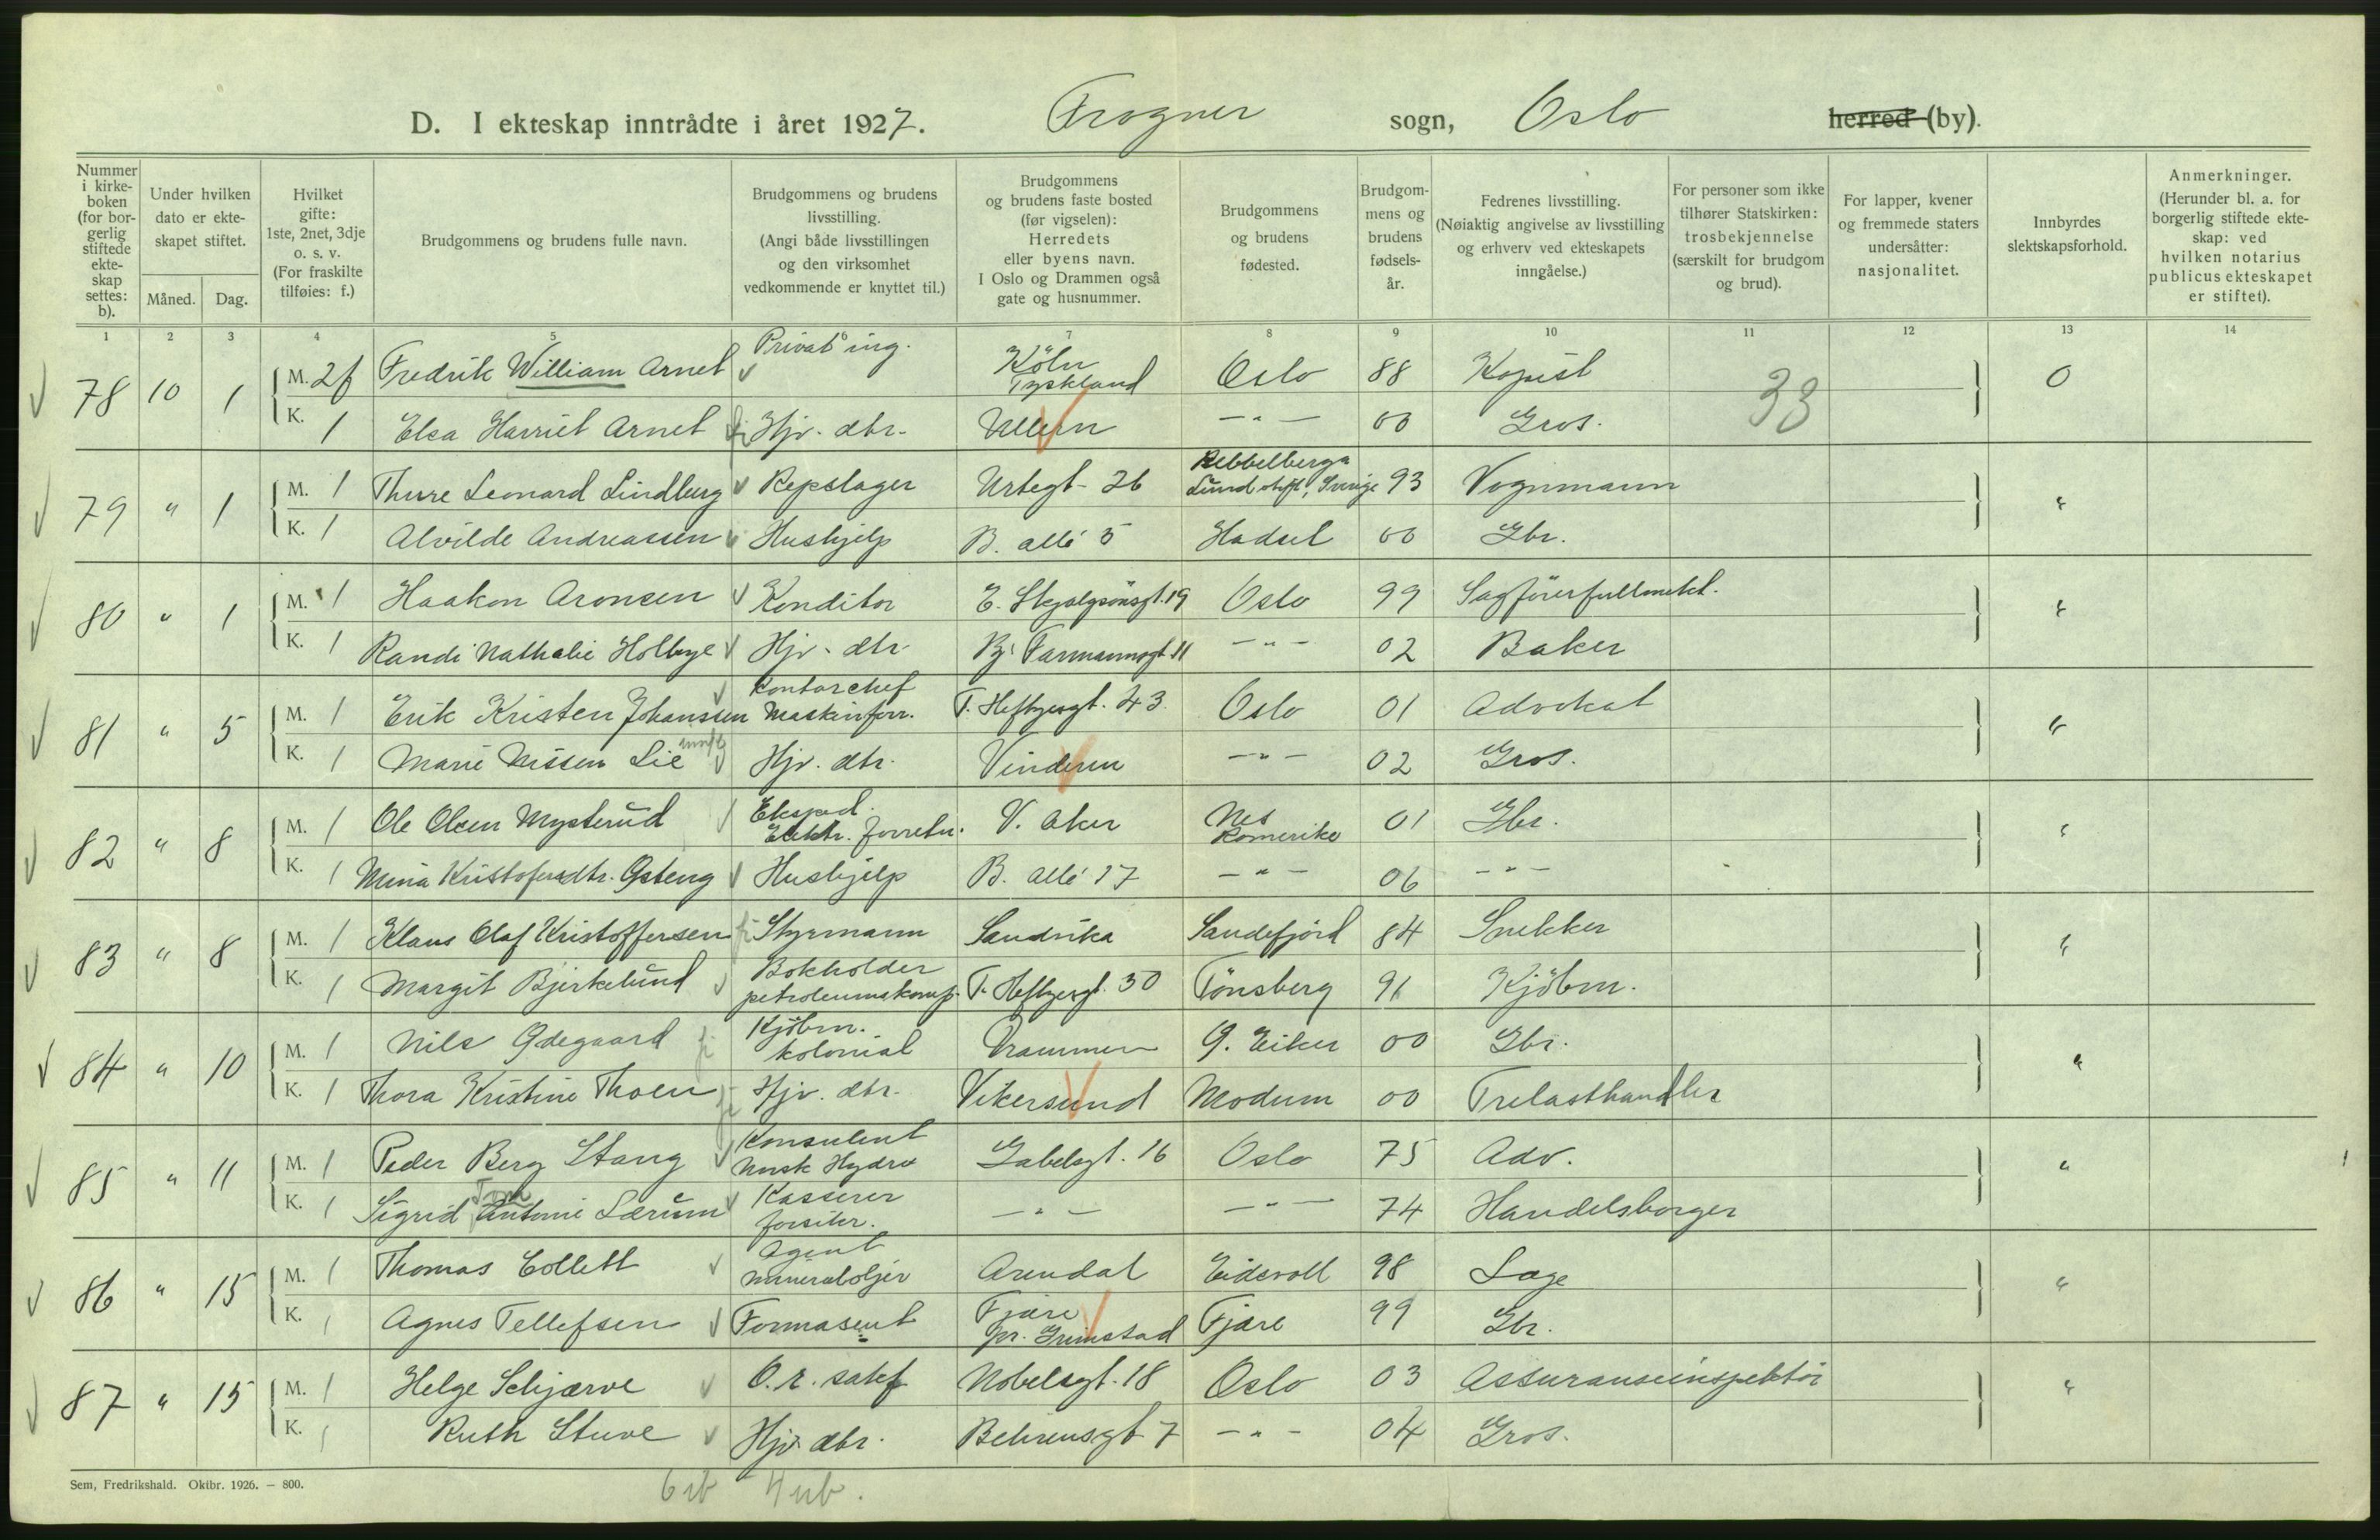 D. I ekteskap inntrådte i året 1927. Frogner sogn, Oslo herred (by).
Nummer i kirkeboken (for borgerlig stiftede ekteskap settes: b).
Under hvilken dato er ekteskapet stiftet.
Måned. Dag.
Hvilket gifte: 1ste, 2net, 3dje o. s. v. (For fraskilte tilføies: f.)
Brudgommens og brudens fulle navn.
Brudgommens og brudens livsstilling. (Angi både livsstillingen og den virksomhet vedkommende er knyttet til.)
Brudgommens og brudens faste bosted (før vigselen): Herredets eller byens navn. I Oslo og Drammen også gate og husnummer.
Brudgommens og brudens fødested.
Brudgommens og brudens fødselsår.
Fedrenes livsstilling. (Nøiaktig angivelse av livsstilling og erhverv ved ekteskapets inngåelse.)
For personer som ikke tilhører Statskirken: trosbekjennelse (særskilt for brudgom og brud).
For lapper, kvener og fremmede staters undersåtter: nasjonalitet.
Innbyrdes slektskapsforhold.
Anmerkninger. (Herunder bl. a. for borgerlig stiftede ekteskap: ved hvilken notarius publicus ekteskapet er stiftet).
1 2 3 4 5 6 7 8 9 10 11 12 13 14
78 10 1 M. 2f Fredrik William Arnet Privat ing. Köln Tyskland Oslo 88 Kopist 33 0
K. 1 Elsa Harriet Arnet Hjv. dtr. Ullern - " - 00 Gros.
79 " 1 M. 1 Thure Leonard Lindberg Repslager Urtegt. 26 Rebbelberga Lund stift, Sverige 93 Vognmann "
K. 1 Alvilde Andreassen Hushjelp B. allé 5 Hadsel 00 Gbr.
80 " 1 M. 1 Haakon Aronsen Konditor E. Skjalgsønsgt. 19 Oslo 99 Sagførerfullmekt. "
K. 1 Randi Nathalie Holbye Hjv. dtr. Bj. Farmannsgt 11 - " - 02 Baker
81 " 5 M. 1 Erik Kristen Johanssen Kontorchef Maskinforr. T. Heftyesgt. 43 Oslo 01 Advokat "
K. 1 Marie Nissen Lie Hjv. dtr. Vinderen - " - 02 Gros.
82 " 8 M. 1 Ole Olsen Mysterud Eksped. Elektr. forretn. V. Aker Nes Romerike 01 Gbr. "
K. 1 Mina Kristofersdtr. Østeng Hushjelp B. allé 17 - " - 06 - " -
83 " 8 M. 1 Klaus Olaf Kristoffersen Styrmann Sandvika Sandefjord 84 Snekker "
K. 1 Margit Bjerkelund Bokholder petroleumskomp. T. Heftyesgt. 30 Tönsberg 91 Kjöbm.
84 " 10 M. 1 Nils Ødegaard Kjöbm. kolonial Drammen Ø. Eiker 00 Gbr. "
K. 1 Thora Kristine Thoen Hjv. dtr. Vikersund Modum 00 Trelasthandler
85 " 11 M. 1 Peder Berg Stang Konsulent Norsk Hydro Gabelsgt. 16 Oslo 75 Adv. "
K. 1 Sigrid Antonie Lærum Kasserer - " - - " - 74 Handelsborger
86 " 15 M. 1 Thomas Collett Agent mineraloljer Arendal Eidsvoll 98 Læge "
K. 1 Agnes Tellefsen Formasent Fjære pr. Grimstad Fjære 99 Gbr.
87 " 15 M. 1 Helge Schjærve O.r. sakf Nobelsgt. 18 Oslo 03 Assuranseinspektör "
K. 1 Ruth Stuve Hjv. dtr. Behrensgt 7 - " - 04 Gros.
Sem, Fredrikshald. Oktbr. 1926. — 800.